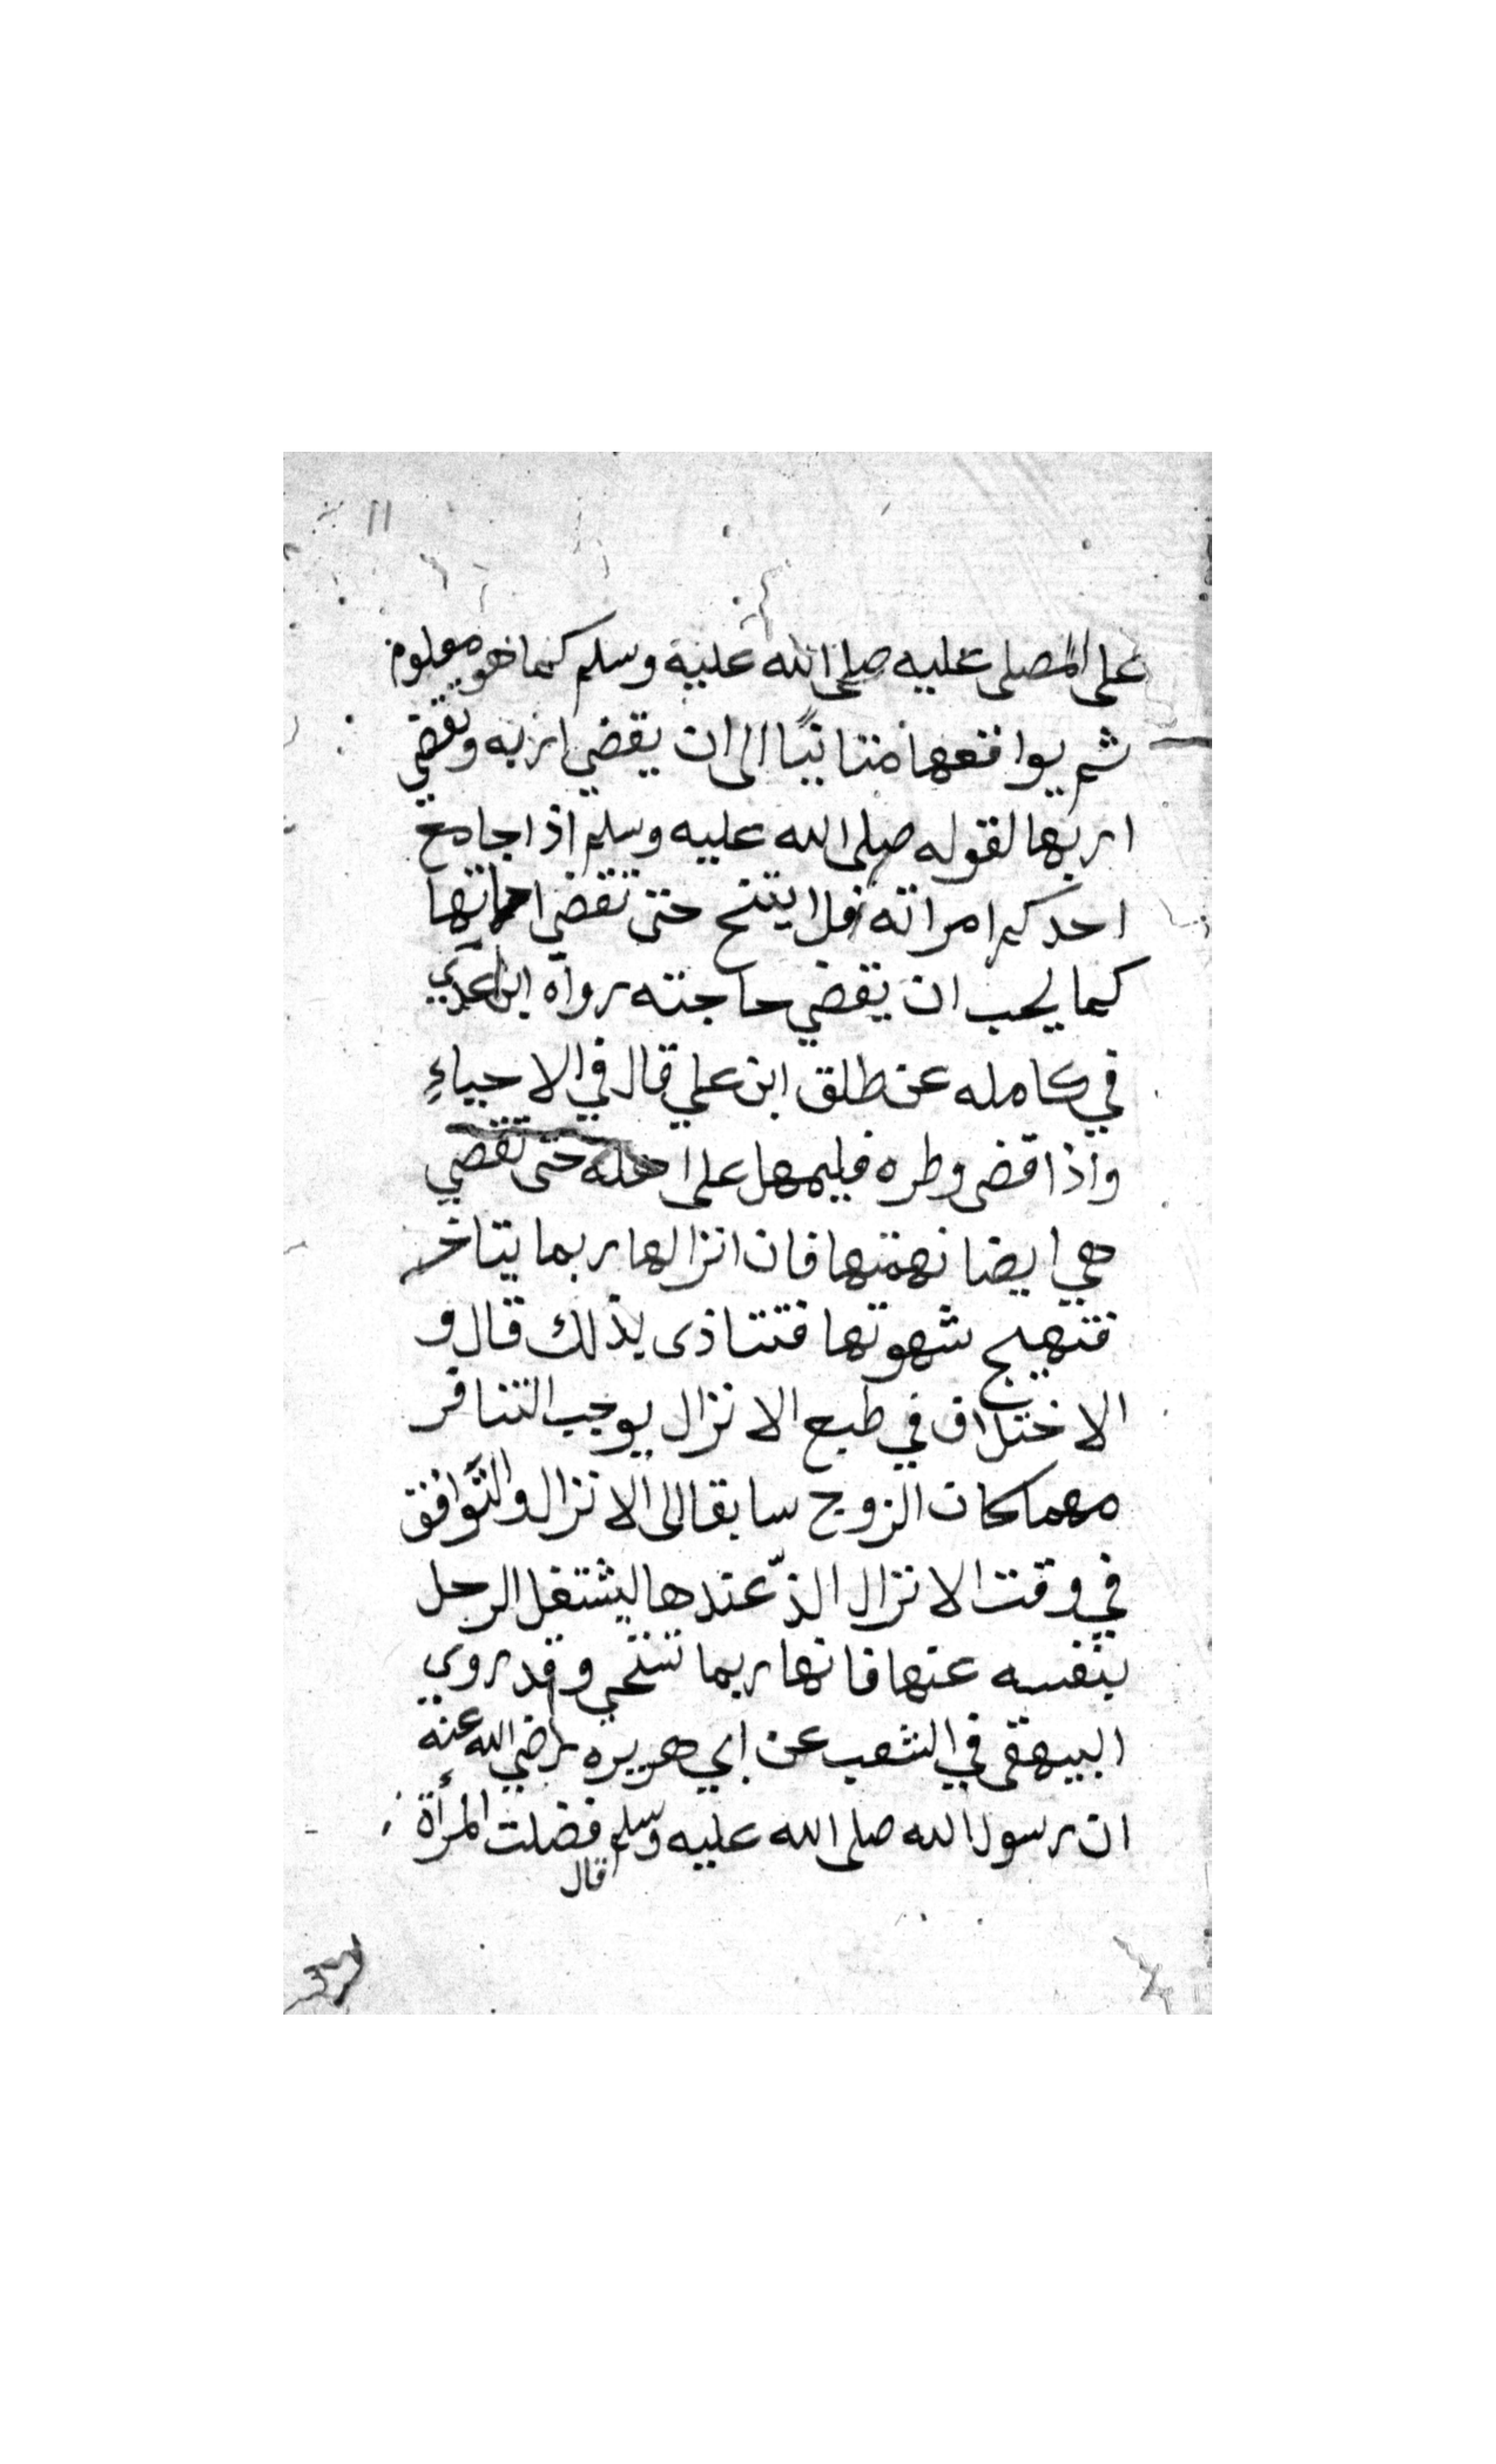 ١١
على المصلى عليه صلى الله عليه وسلم كما هو معلوم
ثم يواقعها متانيًا الى ان يقضي اربه وتقضي
اربها لقوله صلى الله عليه وسلم اذا جامع
احدكم امراته فلا يتنح حتى تقضي حاجتها
كما يحب ان يقضي حاجته رواه ابن عدي
في كامله عن طلق ابن علي قال في الاحياءِ
واذا قضى وطره فليمهل على اهله حتى تقضي
هي ايضا نهمتها فان انزالها ربما يتاخر
فتهيج شهوتها فتتاذى بذلك قال و
الاختلاف في طبع الانزال يوجب التنافر
مهما كان الزوج سابقا الى الانزال والتّوافق
في وقت الانزال الذّ عندها ليشتغل الرجل
بنفسه عنها فانها ربما تستحي وقد روي
البيهقى في الشعب عن ابي هريره رضي الله عنه
ان رسول الله صلى الله عليه وسلم فضلت المرأة
قال